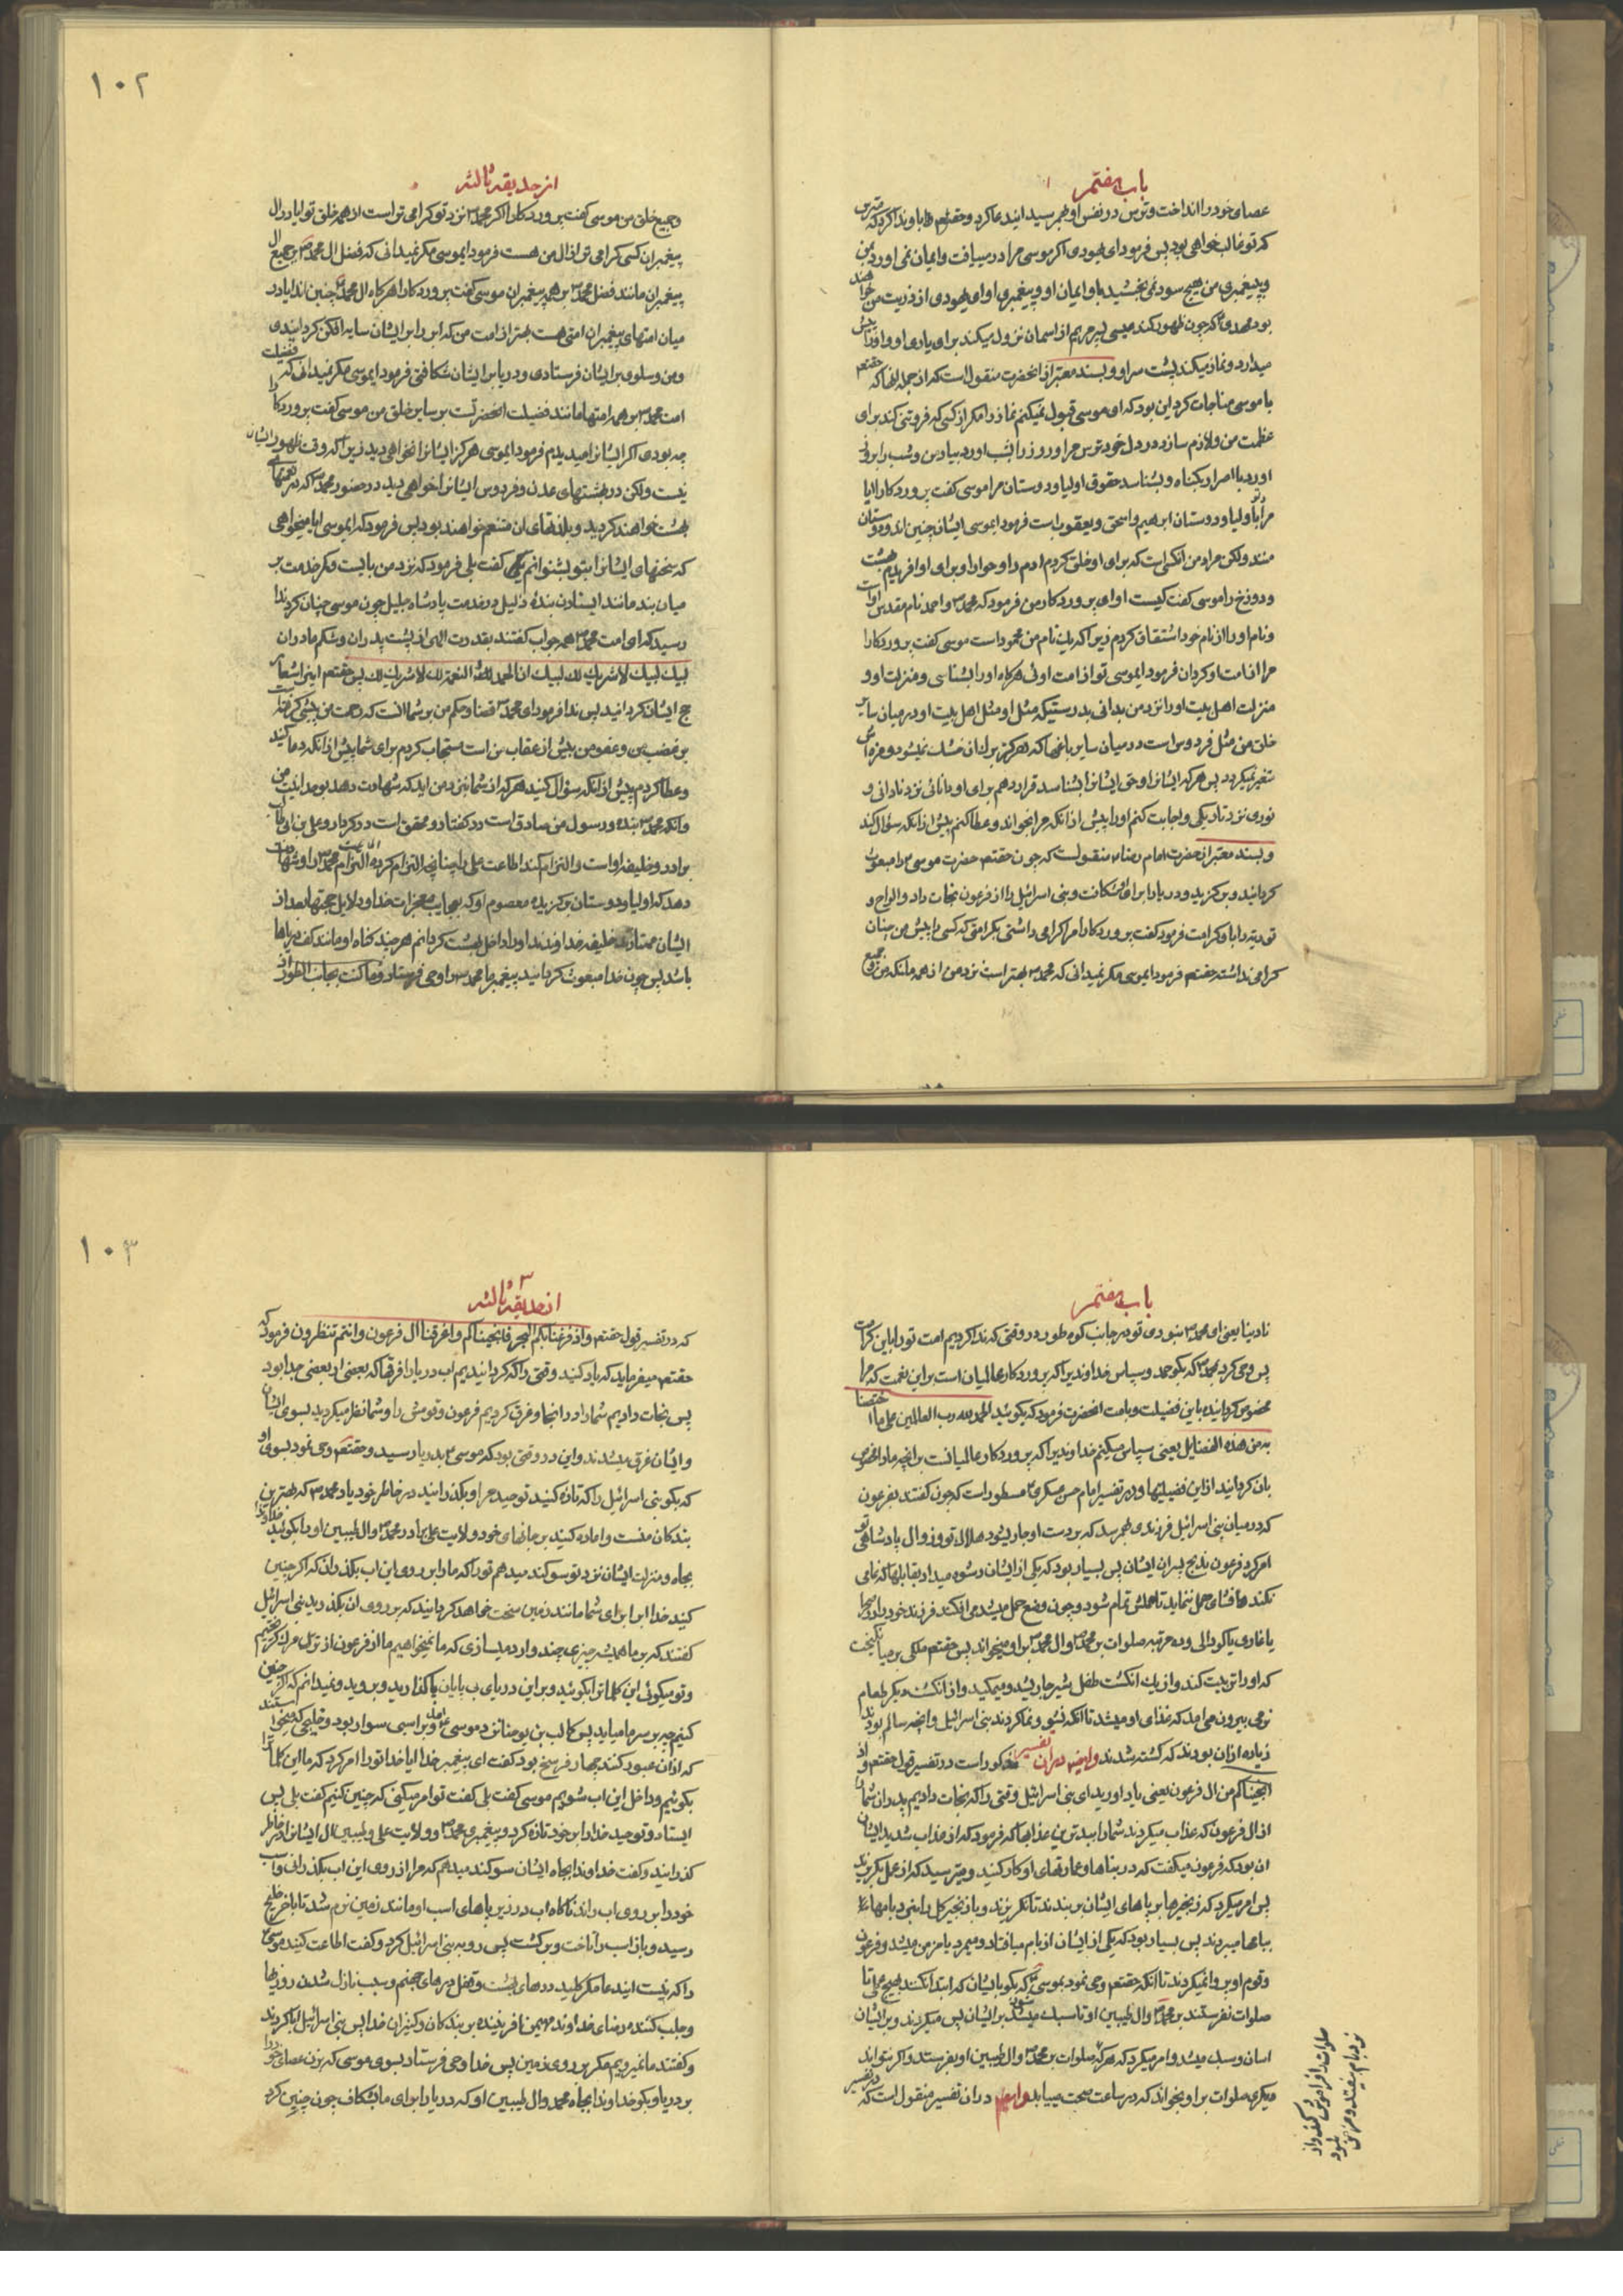 باب هفتم
عصای خود را انداخت و ترس در نفس او بهم رسید اینه عا کرد و حقتعالی باو ندا کرد که مترس
که تو غالب خواهی بود پس فرمود ای یهودی اگر موسی مرا در مییافت و ایمان نمی اورد بمن
و پیغمبری من هیچ سود نمی بخشید باو ایمان او و پیغمبری او ای یهودی از ذریت من خواهد
بود مهدی که چون ظهور کند عیسی پسر مریم از اسمان نزول میکند برای یاری او و او را پیش
میدارد و نماز میکند پشت سر او و بسند معتبر از انحضرت منقول است که از جمله انها که حقتعم
با موسی مناجات کرد این بود که ای موسی قبول نمیکنم نماز را مگر از کسی که فروتنی کند برای
عظمت من و لازم سازد در دل خود ترس مرا و روز را بشب اورد بیاد من و شب را بروز
اورد با اصرار بکناه و بشناسد حقوق اولیا و دوستان مرا موسی کفت پروردکارا ایا
مراد تو باولیا و دوستان ابرهیم و اسحق و یعقوب است فرمود ایموسی ایشان چنین اند و دوستان
منند ولکن مراد من انکسی است که برای او خلق کردم ادم را و حوا را و برای او افریدم بهشت
و دوزخ را موسی کفت کیست او ای پروردکار من فرمود که محمد و احمد نام مقدس اوست
و نام او را از نام خود اشتقاق کردم زیرا که یک نام من محمود است موسی کفت پروردکارا
مرا از امت او کردان فرمود ایموسی تو از امت اوئی هرکاه او را بشناسی و منزلت او و
منزلت اهل بیت او را نزد من بدانی بدرستیکه مثل او و مثل اهل بیت او در میان سایر
خلق من مثل فردوس است در میان سایر باغها که هرکز برک ان خشک نمیشود و مزه اش
تغیر نمیکردد پس هر که ایشانرا و حق ایشانرا بشناسد قرار دهم برای او دانائی نزد نادانی و
نوری نزد تاریکی و اجابت کنم او را پیش از انکه مرا بخواند و عطا کنم پیش از انکه سؤال کند
و بسند معتبر از حضرت امام رضا منقولست که چون حقتعم حضرت موسی را مبعوث
کردانید و برکزید و دریا را برای او شکافت و بنی اسرائیل را از فرعون نجات داد و الواح و
توریة را باو کرامت فرمود کفت پروردکارا مرا کرامی داشتی بکرامتی که کسی را پیش از من چنان
کرامی نداشته حقتعم فرمود ایموسی مکر نمیدانی که محمد بهتر است نزد من از همه ملئکه من و جمیع
۱۰۲
از حدیقه ثالثه
و جمیع خلق من موسی کفت پروردکارا اکر محمد نزد تو کرامی تر است از همه خلق تو ایا در ال
پیغمبران کسی کرامی تر از ال من هست فرمود ایموسی مکر نمیدانی که فضل ال محمد بر جمیع ال
پیغمبران مانند فضل محمد بر همه پیغمبران موسی کفت پروردکارا هرکاه ال محمد چنین اند ایا در
میان امتهای پیغمبران امتی هست بهتر از امت من که ابر را بر ایشان سایه افکن کردانیدی
و من و سلوی بر ایشان فرستادی و دریا بر ایشان شکافتی فرمود ایموسی مکر نمیدانی که فضیلت
امت محمد بر همه امتها مانند فضیلت انحضرتست بر سایر خلق من موسی کفت پروردکارا
چه بودی اکر ایشانرا میدیدم فرمود ایموسی هرکز ایشانرا نخواهی دید زیرا که وقت ظهور ایشان
نیست ولکن در بهشتهای عدن و فردوس ایشانرا خواهی دید در حضور محمد که در نعمتهای
بهشت خواهند کردید و بلذتهای ان متنعم خواهند بود پس فرمود که ایموسی ایا میخواهی
که سخنهای ایشانرا بتو بشنوانم کفت بلی فرمود که نزد من بایست و کمر خدمت بر
میان بند مانند ایستادن بندۀ ذلیل در خدمت پادشاه جلیل چون موسی چنان کرد ندا
رسید که ای امت محمد همه جواب کفتند بقدرت الهی از پشت پدران و شکم مادران
لبیک لبیک لا شریک لک لبیک ان الحمد لک و النعمة لک لا شریک لک پس حقتعم این را شعار
حج ایشان کردانید پس ندا فرمود ای محمد قضا و حکم من بر شما انست که رحمت من پیشی کرفته است
بر غضب من و عفو من پیش از عقاب من است مستجاب کردم برای شما پیش از انکه دعا کنید
و عطا کردم پیش از انکه سؤال کنید هر که از شما بنزد من اید که شهادت دهد بوحدانیت من
و انکه محمد بنده و رسول من صادق است در کفتار و محقق است در کردار و علی بن ابی طالب
برادر و خلیفه او است و التزام کند اطاعت علی را چنانچه التزام کرده اطاعت محمد را و شهادت
دهد که اولیا و دوستان برکزیده معصوم او که بعجایب معجزات خدا و دلایل حجتها بعد از
ایشان ممتازند خلیفه خداوندند او را داخل بهشت کردانم هر چند کناه او مانند کف دریاها
باشد پس چون خدا مبعوث کردانید پیغمبر ما محمد را وحی فرستاد وما کنت بجانب الطور اذ
باب هفتم
نادینا یعنی ای محمد نبودی تو در جانب کوه طور در وقتی که ندا کردیم امت تو را باین کرامت
پس وحی کرد بمحمد که بکو حمد و سپاس خداوندیرا که پروردکار عالمیان است بر این نعمت که مرا
مخصوص کردانیده باین فضیلت و بامت انحضرت فرمود که بکوئید الحمد لله رب العالمین علی ما اختصنا
به من هذه الفضایل یعنی سپاس میکنم خداوندیرا که پروردکار عالمیانست بر انچه ما را مخصوص
بان کردانید از این فضیلتها و در تفسیر امام حسن عسکری مسطور است که چون کفتند بفرعون
که در میان بنی اسرائیل فرزندی بهم رسد که بر دست او جاری شود هلاک تو و زوال پادشاهی تو
امر کرد فرعون بذبح پسران ایشان پس بسیار بود که یکی از ایشان رشوه میداد بقابلها که غمازی
نکنند و افشای حمل ننماید تا حملش تمام شود و چون وضع حمل میشد می افکند فرزند خود را در صحرا
یا غاری یا کودالی و ده مرتبه صلوات بر محمد و ال محمد بر او میخواند پس حقتعم ملکی بر میانکیخت
که او را تربیت کند و از یک انکشت طفل شیر جاری شد و میمکید و از انکشت دیکر طعام
نرمی بیرون می امد که غذای او میشد تا انکه نشو و نما کردند بنی اسرائیل و انچه سالم بودند
زیاده از ان بودند که کشته شدند و ایضا در ان تفسیر مذکور است در تفسیر قول حقتعم و اذ
انجیناکم من ال فرعون یعنی یاد اورید ای بنی اسرائیل وقتی را که نجات دادیم پدران شما را
از ال فرعون که عذاب میکردند شما را ببدترین عذابها که فرمود که از عذاب شدید ایشان
ان بود که فرعون میکفت که در بناها و عمارتهای او کار کنند و میترسید که از عمل بکریزند
پس امر میکرد که زنجیرها بر پاهای ایشان بر بندند تا نکریزند و با زنجیر کل را بنردبامها
ببامها میبردند پس بسیار بود که یکی از ایشان از بام میافتاد و میمرد یا مزمن میشد و فرعون
و قوم او پروا نمیکردند تا انکه حقتعم وحی نمود بموسی که بکو بایشان که ابتدا نکنند بهیچ عملی تا
صلوات نفرستند بر محمد و ال طیبین او تا سبک شود بر ایشان پس میکردند و بر ایشان
اسان و سبک میشد و امر میکرد که هر که صلوات بر محمد و ال طیبین او بفرستد و اکر نتواند
دیکری صلوات بر او بخواند که در ساعت صحت مییابد و ایضا در ان تفسیر منقول است که در تفسیر
صلوات را فراموش کند و از
نردبام بیفتد و مزمن شود
۱۰۳
از حدیقه ثالثه
که در تفسیر قول حقتعم و اذ فرقنا بکم البحر فانجیناکم و اغرقنا ال فرعون و انتم تنظرون فرمود که
حقتعم میفرماید که یاد کنید وقتی را که کردانیدیم اب دریا را فرقها که بعضی از بعضی جدا بود
پس نجات دادیم شما را در انجا و غرق کردیم فرعون و قومش را و شما نظر میکردید بسوی ایشان
و ایشان غرق میشدند و این در وقتی بود که موسی بدریا رسید و حقتعم وحی نمود بسوی او
که بکو بنی اسرائیل را که تازه کنید توحید مرا و بکذرانید در خاطر خود یاد محمد که بهترین
بندکان منست و اماده کنید بر جانهای خود ولایت علی برادر محمد و ال طیبین او را بکوئید خداوندا
بجاه و منزلت ایشان نزد تو سوکند میدهم تو را که ما را بر روی این اب بکذران که اکر چنین
کنید خدا اب را برای شما مانند زمین سخت خواهد کردانید که بر روی ان بکذرید بنی اسرائیل
کفتند که بر ما همیشه چیزی چند وارد میسازی که ما نمیخواهیم ما از فرعون از ترس مرک کریختیم
و تو میکوئی این کلماترا بکوئید و بر این دریای بی پایان پا کذارید و بروید و نمیدانیم که اکر چنین
کنیم چه بر سر ما میاید پس کالب بن یوحنا نزد موسی امد و بر اسبی سوار بود و خلیجی که میخواستند
که از ان عبور کنند چهار فرسخ بود کفت ای پیغمبر خدا ایا خدا تو را امر کرد که ما این کلماترا
بکوئیم و داخل این اب شویم موسی کفت بلی کفت تو امر میکنی که چنین کنیم کفت بلی پس
ایستاد و توحید خدا را بر خود تازه کرد و پیغمبری محمد و ولایت علی و طیبین ال ایشانرا در خاطر
کذرانید و کفت خداوندا بجاه ایشان سوکند میدهم که مرا از روی این اب بکذرانی و اسب
خود را بر روی اب راند ناکاه اب در زیر پاهای اسب او مانند زمین نرم شد تا باخر خلیج
رسید و باز اسب را تاخت و برکشت پس رو به بنی اسرائیل کرد و کفت اطاعت کنید موسی
را که نیست اینه عا مکر کلید درهای بهشت و قفل درهای جهنم و سبب نازل شدن روزیها
و جلب کننده رضای خداوند مهیمن افریننده بر بندکان و کنیزان خدا پس بنی اسرائیل ابا کردند
و کفتند ما نمیرویم مکر بر روی زمین پس خدا وحی فرستاد بسوی موسی که بزن عصای خود را
بر دریا و بکو خداوندا بجاه محمد و ال طیبین او که دریا را برای ما بشکاف چون چنین کرد